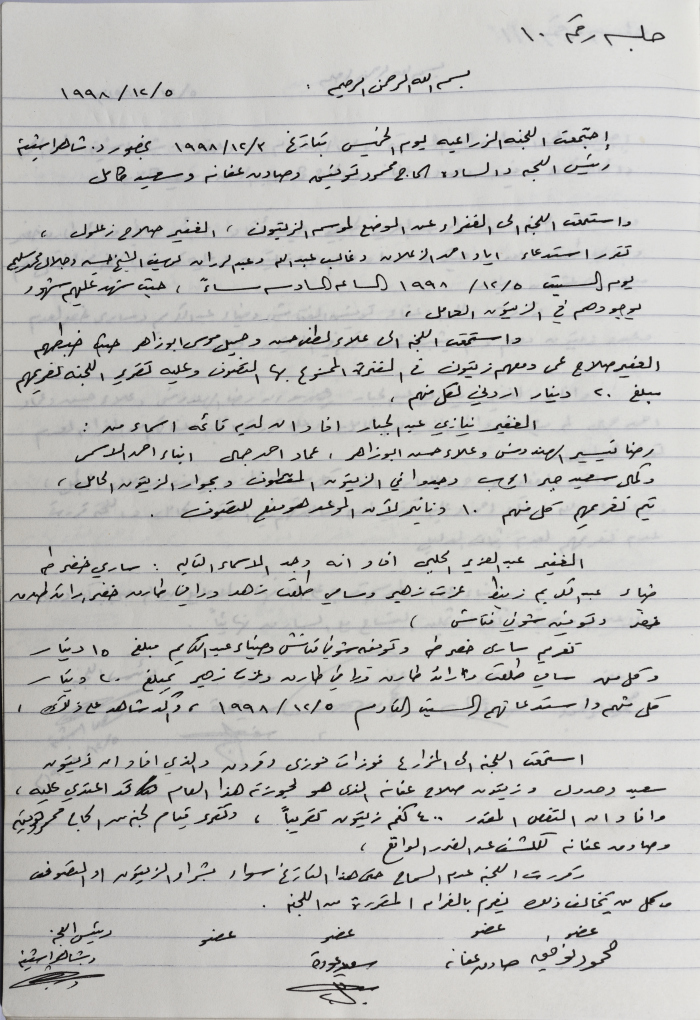 جلسه رقم ١٠
بسم الله الرحمن الرحيم :
١٩٩٨/١٢/٥
إجتمعت اللجنه الزراعيه يوم الخميس بتاريخ ١٩٩٨/١٢/٣ بحضور د. شاهر اشتيه
رئيس اللجنه والساده الحاج محمود توفيق وصادق عفانه وسعيد كامل
واستمعت اللجنه الى الغفراء عن الوضع لموسم الزيتون ، الغفير صلاح زعلول ،
تقرر استدعاء اياد احمد الزعلان وغالب عبد الله وعبد الرزاق الشيخ حسين وجلال محمد سليم
يوم السبت ١٩٩٨/١٢/٥ الساعه السادسه مساءً ، حيث شهد عليهم شهود
بوجودهم في الزيتون الحامل ،
واستمعت اللجنه الى علاء لطفي حسن وجميل موسى ابوزاهر حيث ضبطهم
الغفير صلاح ومعهم زيتون في الفترة الممنوع بها التصيف وعليه تقرر اللجنه تغريمهم
مبلغ ٢٠ دينار اردني لكل منهم ،
الغفير نيازي عبد الجبار افاد ان لديه قائمه اسماء من :
رضا تيسير وعلاء حسن ابوزاهر ، عماد احمد جمال ابناء احمد الاسمر
وكمال سعيد جبر وجدوا في الزيتون الملقطون وبجوار الزيتون الحامل ،
تم تغريمهم كل منهم ١٠ دنانير لأن الموعد هو منع للتصيف .
الغفير عبد العزيز الحلبي افاد انه وجد الاسماء التاليه : ساري خضر طه
ضياء عبد الكريم عزت زهير وسامي طلعت زهد ورامي طارق خضر رائد طارق
خضر وتوفيق شوقي قناش )
تغريم ساري خضر طه وتوفيق شوقي قناش وضياء عبد الكريم مبلغ ١٥ دينار
وكل من سامي طلعت ورائد طارق ورامي طارق وعزت زهير بمبلغ ٢٠ دينار
كل منهم واستدعائهم السبت القادم ١٩٩٨/١٢/٥ ، وأكد شاهد على ذلك ،
استمعت اللجنه الى المزارع فوزات فوزي وقردن والذي افاد ان زيتون
سعيد وجدول وزيتون صلاح عفانه الذي هو بحوزته هذا العام قد اعتدي عليه ،
وافاد ان النقص المقدر ٤٠٠ كغم زيتون تقريباً ، وتقرر قيام لجنه من الحاج محمود توفيق
وصادق عفانه للكشف عن القدر الواقع ،
وقررت اللجنه عدم السماح حتى هذا التاريخ سواء بشراء الزيتون او التصيف
وكل من يخالف ذلك يغرم بالغرامه المقررة من اللجنه .
عضو عضو عضو عضو رئيس اللجنه
محمود توفيق صادق عفانه سعيد عودة د. شاهر اشتيه